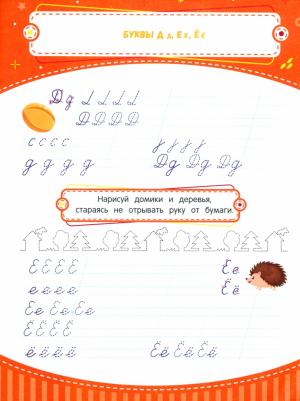 БУКВЫ Д д, Е е, Ё ё
Дд
Д Д Д Д
с с с с
д д д д
Дд Дд Дд
Нарисуй домики и деревья,
стараясь не отрывать руку от бумаги.
Е Е Е Е
Ее
е е е е
Ёё
Ее Ее Ее
Ё Ё Ё Ё
ё ё ё ё
Ёё Ёё Ёё